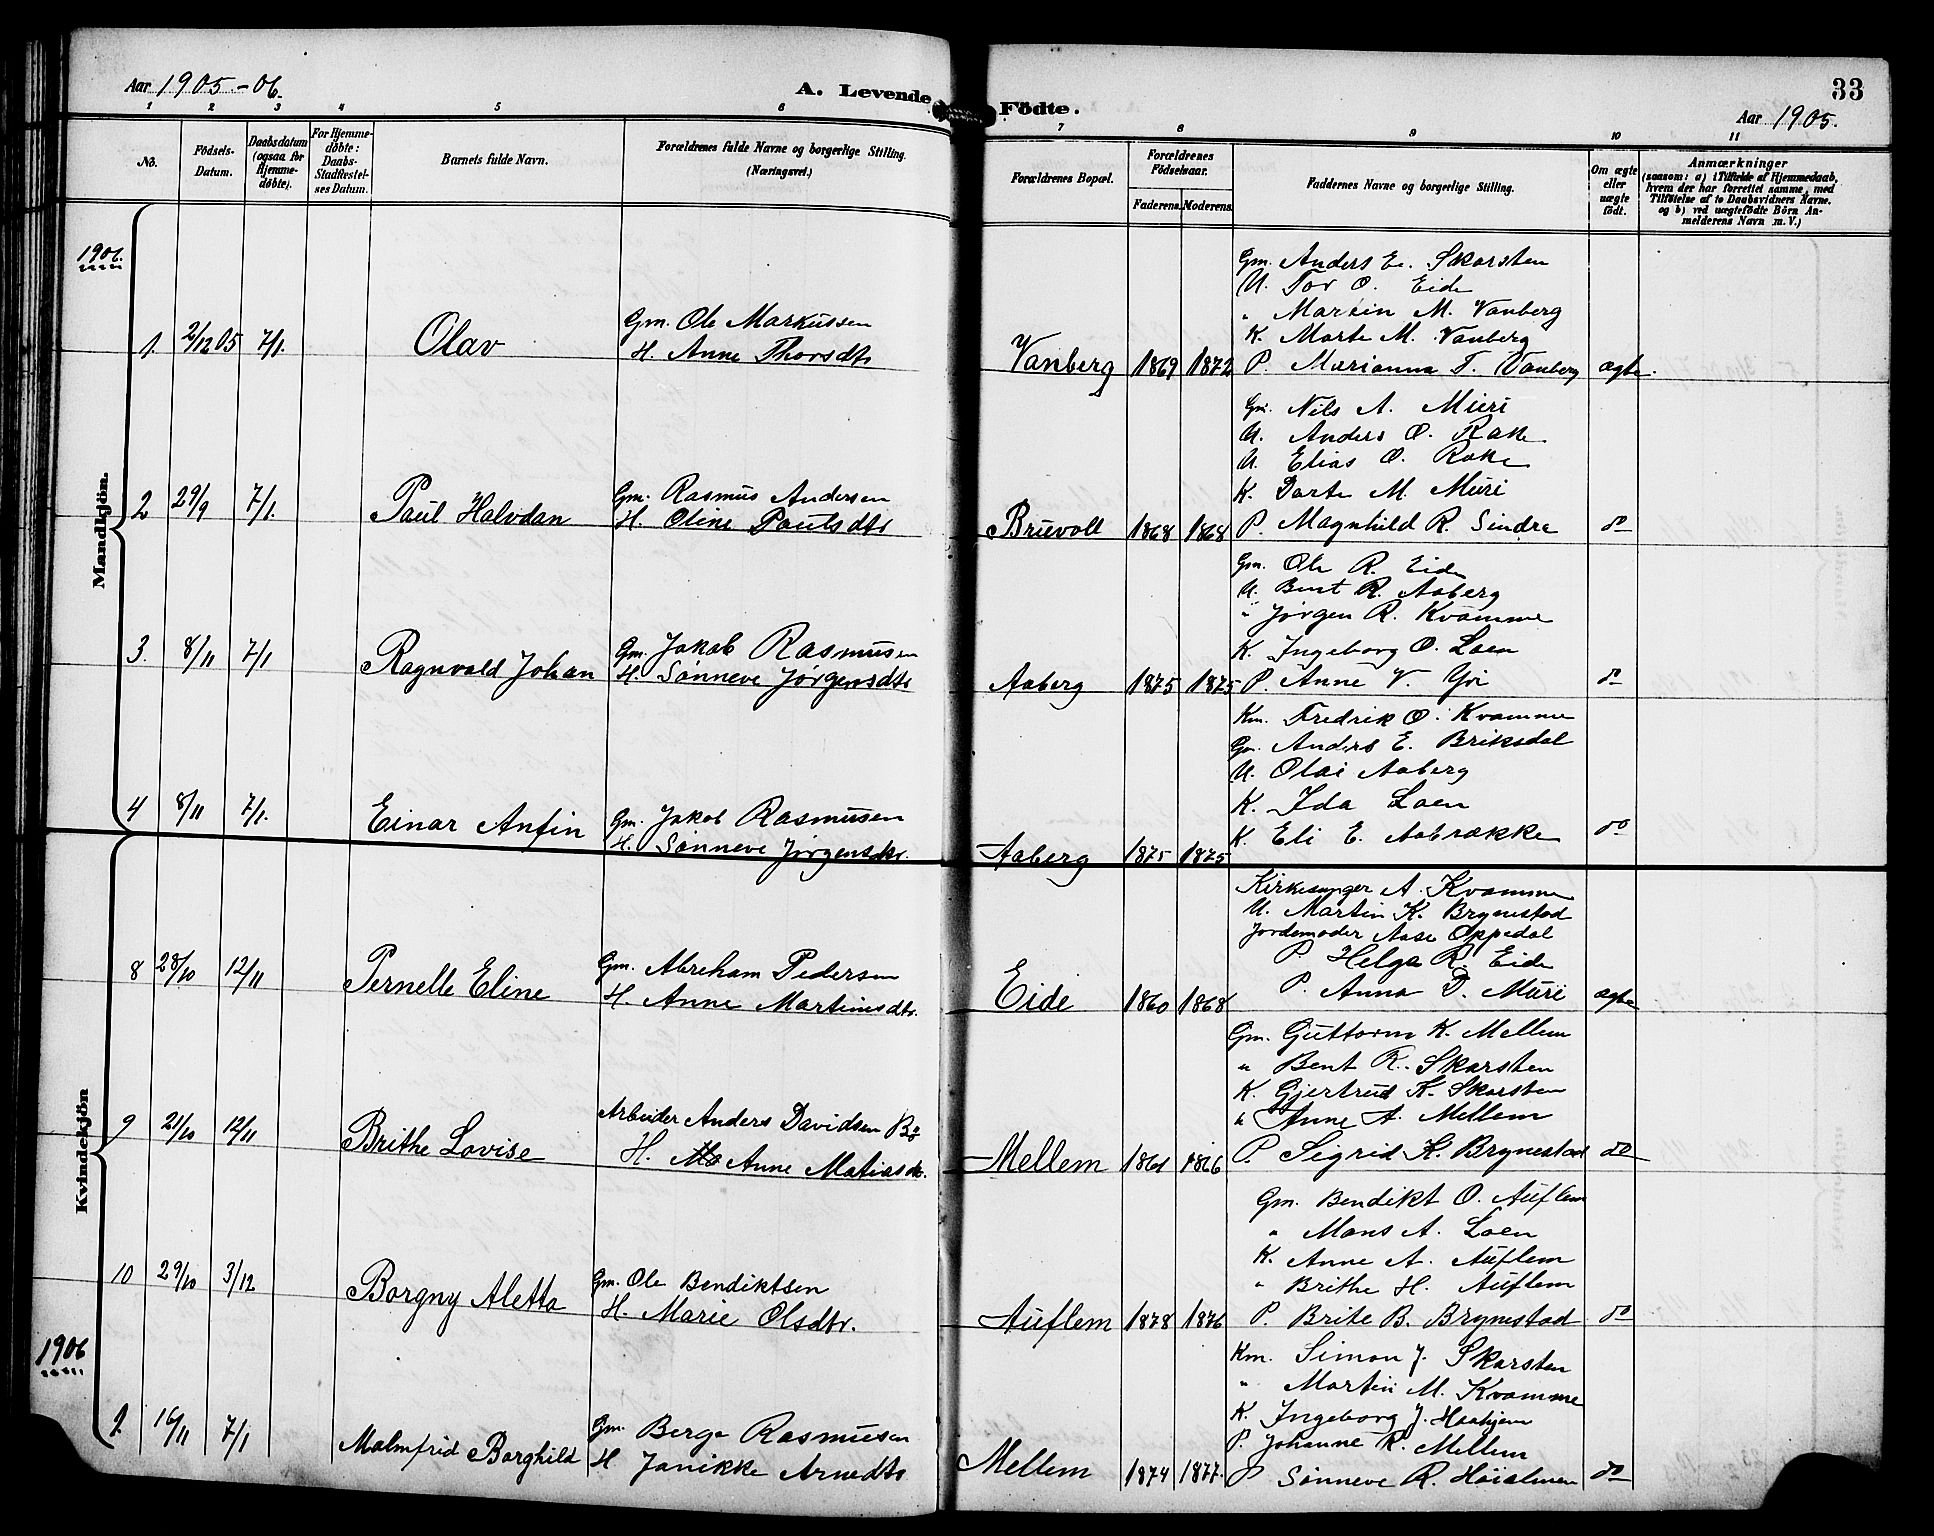 Aar 1905-06.
A. Levende Födte.
33
Aar 1905.
1 2 3 4 5 6 7 8 9 10 11
No.
Födsels-Datum.
Daabsdatum (ogsaa for Hjemme-döbte).
For Hjemme-döbte: Daabs-Stadfæstel-ses Datum.
Barnets fulde Navn.
Forældrenes fulde Navne og borgerlige Stilling.
(Næringsvei.)
Forældrenes Bopæl.
Forældrenes Födselsaar.
Faderens. Moderens.
Faddernes Navne og borgerlige Stilling.
Om ægte eller uægte födt.
Anmærkninger
(saasom: a) i Tilfælde af Hjemmedaab, hvem der har forrettet samme, med Tilföielse af to Daabsvidners Navne, og b) ved uægtefödte Börn Anmelderens Navn m. V.)
Mandkjön.
1906.
1. 2/12 05 7/1. Olav
Gm. Ole Markussen
H. Anne Thorsdtr
Vanberg 1869 1872
Gm. Anders E. Skarsten
U. Tor O. Eide
" Martin M. Vanberg
K. Marte M. Vanberg
P. Marianna T. Vanberg
ægte.
2 29/9 7/1. Paul Halvdan
Gm. Rasmus Andersen
H. Oline Paulsdtr
Bruvoll 1868 1868
Gm. Nils A. Muri
U. Anders O. Rake
U. Elias O. Rake
K. Dorte M. Muri
P. Magnhild R. Sindre
do
3. 8/11 7/1 Ragnvald Johan
Gm. Jakob Rasmusen
H. Sønneve Jørgensdtr
Aaberg 1875 1875
Gm. Ole R. Eide
U. Bent R. Aaberg
" Jørgen R. Kvamme
K. Ingeborg O. Loen
P. Anne V. Yri
do
4 8/11 7/1. Einar Anfin
Gm. Jakob Rasmusen
H. Sønneve Jørgensdtr.
Aaberg 1875 1875
Km. Fredrik O. Kvamme
Gm. Anders E. Briksdal
U. Olai Aaberg
K. Ida Loen
K. Eli E. Aabrække
do
Kvindekjön
8 28/10 12/11 Pernelle Eline
Gm. Abreham Pedersen
H. Anne Martinusdtr.
Eide 1860 1868
Kirkesanger A. Kvamme
U. Martin K. Brynestad
Jordemoder Aase Oppedal
P. Helga R. Eide
P. Anna D. Muri
ægte
9 21/10 12/11 Brithe Lovise
Arbeider Anders Davidsen Bø
H. Anne Matiasdtr.
Mellem 1861 1866
Gm. Guttorm K. Mellem
" Bent R. Skarsten
K. Gjertrud K. Skarsten
" Anne A. Mellem
P. Sigrid K. Brynestad
do
10 29/10 3/12 Borgny Aletta
Gm. Ole Bendiktsen
H. Marie Olsdtr.
Auflem 1878 1876
Gm. Bendikt O. Auflem
" Mons A. Loen
K. Anne A. Auflem
" Brithe H. Auflem
P. Brite B. Brynestad
do
1906
1. 16/11 7/1 Malmfrid Borghild
Gm. Berge Rasmusen
H Janikke Arnedtr
Mellem 1874 1877.
Km. Simon J. Skarsten
" Martin M. Kvamme
K. Ingeborg J. Haahjem
P. Johanne R. Mellem
P Sønneve R. Høialmen
do